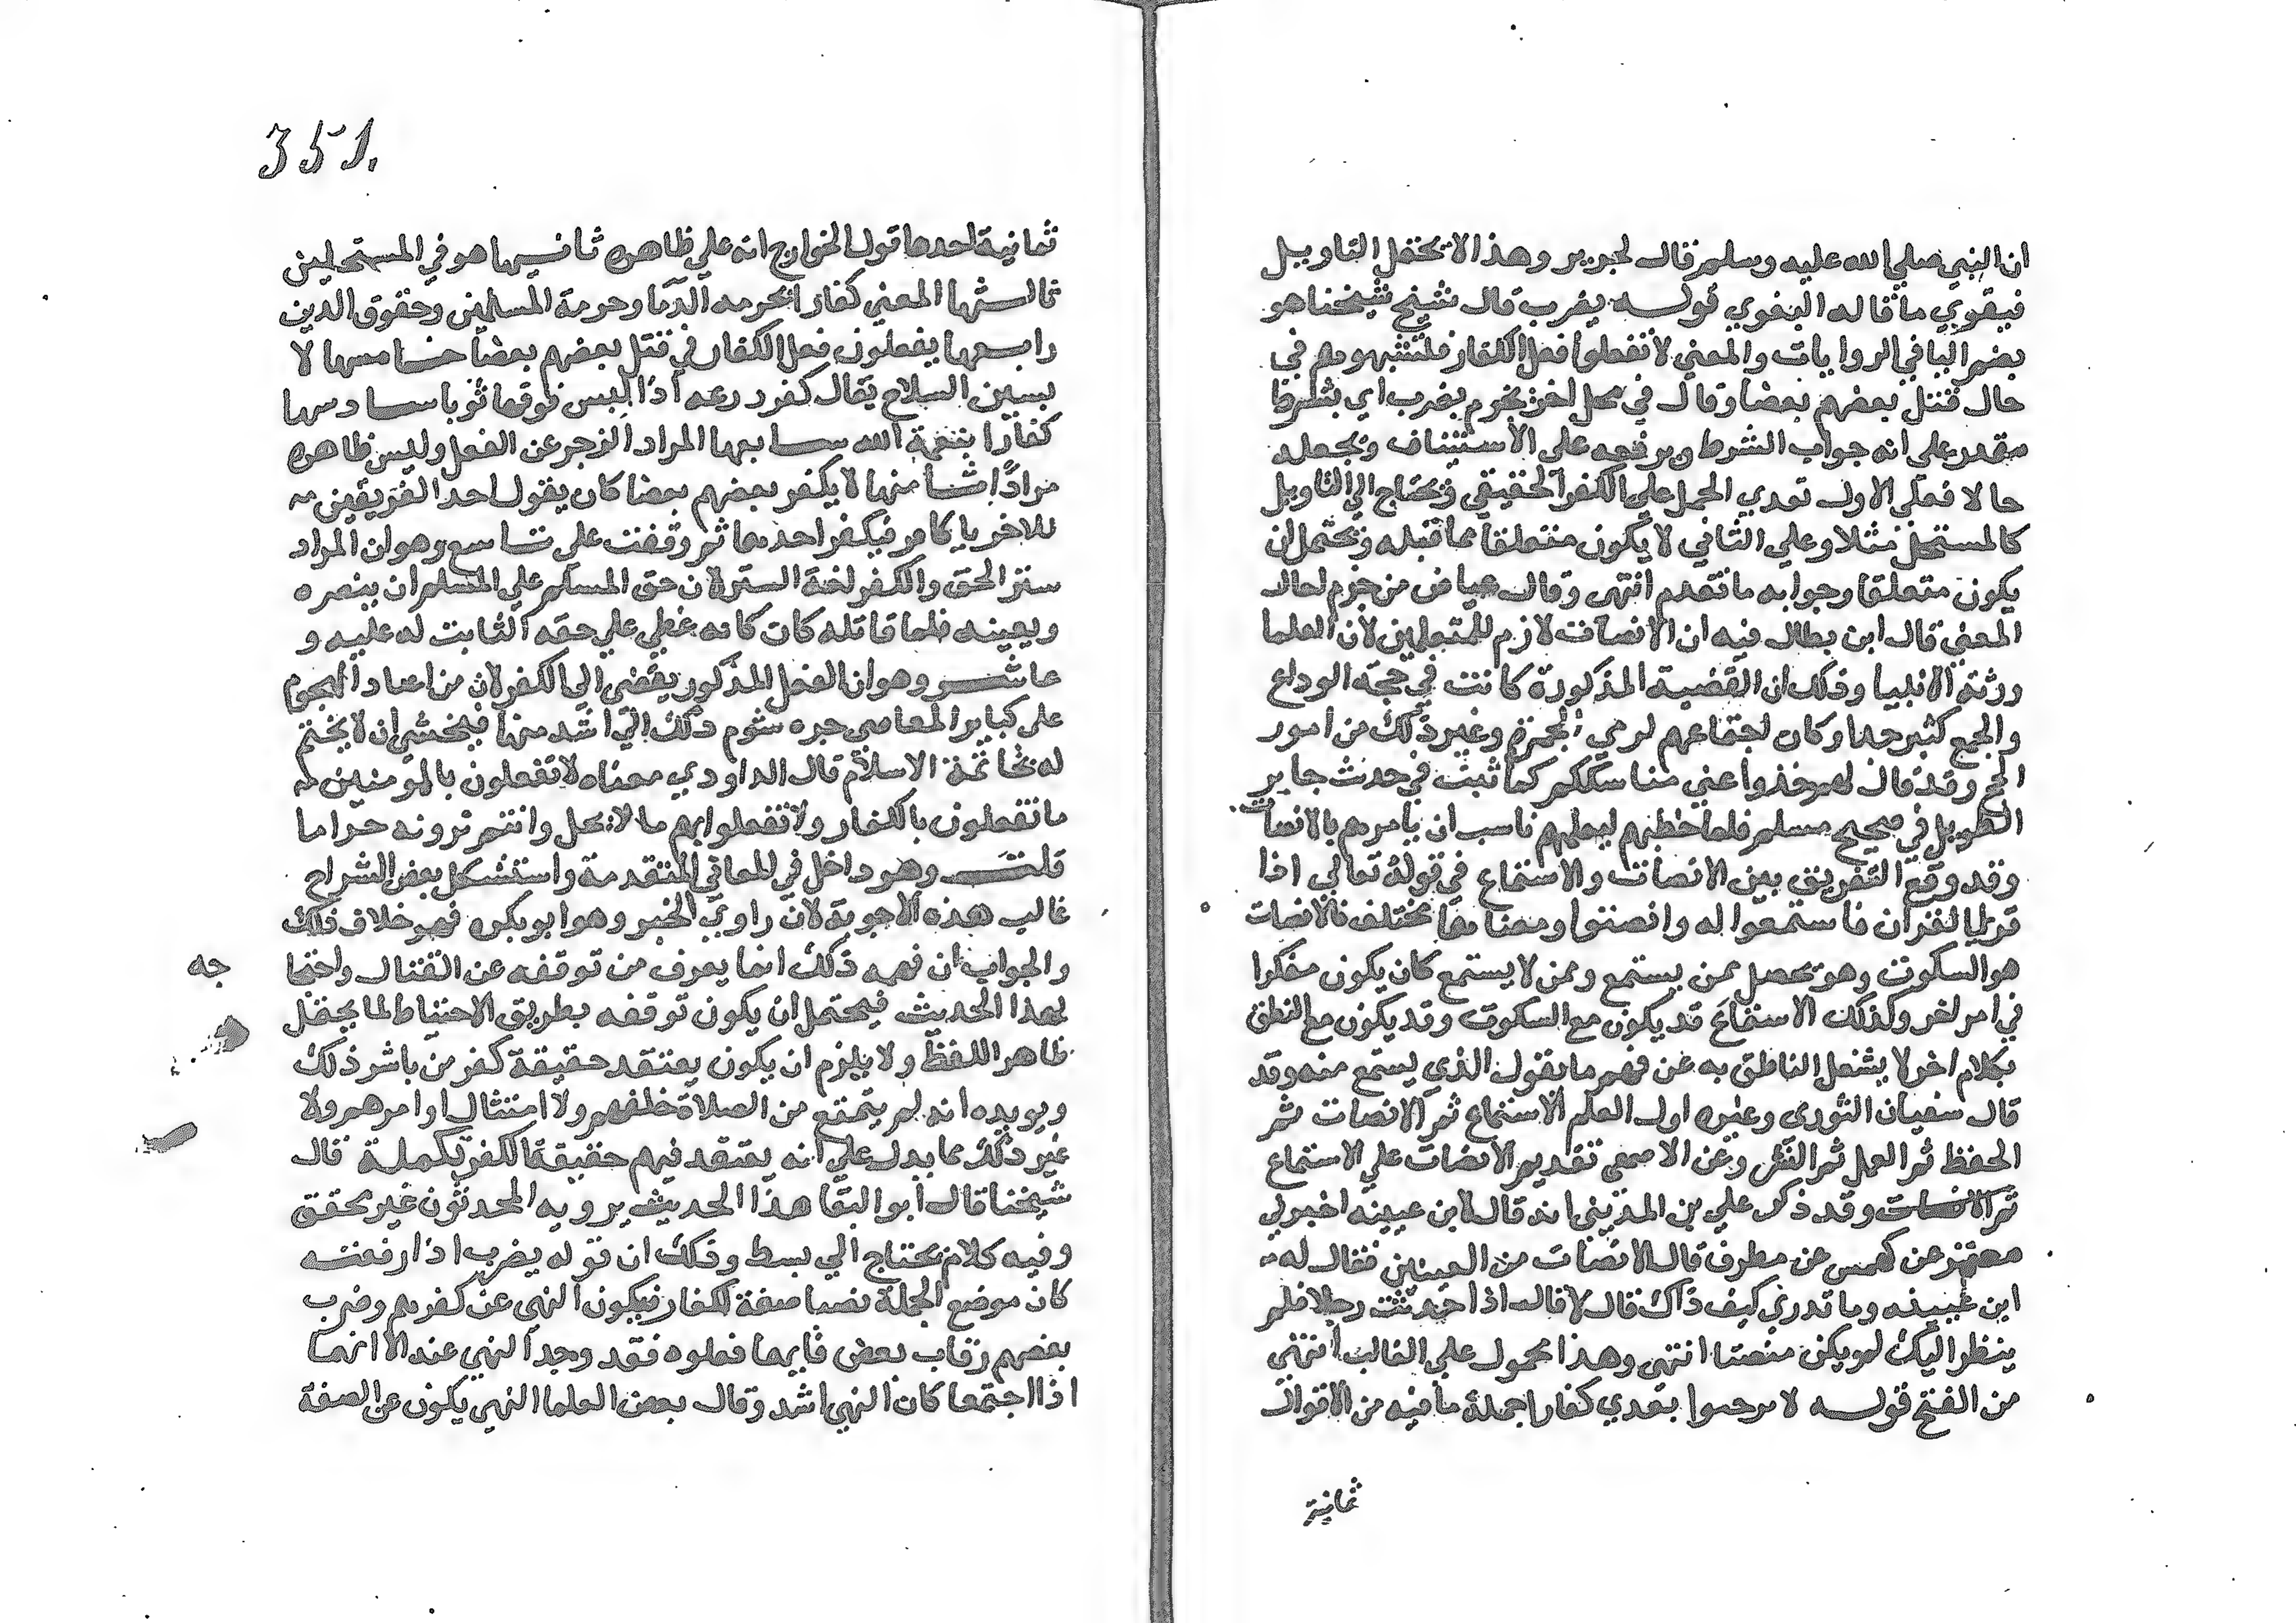 ان النبي صلي الله عليه وسلم قال لجرير وهذا لا يحتمل التاويل
فيقوي ما قاله البغوي قوله يضرب قال شيخ شيخنا هو
بضم البا في الروايات والمعني لا تفعلوا فعل الكفار فتشبهوهم في
حال قتل بعضهم بعضا وقال في محل اخر بجزم يضرب اي بشرط
مقدر علي انه جواب الشرط وبرفعه علي الاستئناف وبجعله
حالا فعلي الاول تعدي الحمل علي الكفر الحقيقي ويحتاج الي التاويل
كالمستحل مثلا وعلي الثاني لا يكون متعلقا بما قبله ويحتمل ان
يكون متعلقا وجوابه ما تقدم انتهي وقال عياض من جزم احال
المعني قال ابن بطال فيه ان الانصات لازم للمتعلمين لان العلما
ورثة الانبيا وذلك ان القضية المذكورة كانت في حجة الوداع
والجمع كثير جدا وكان اجتماعهم لرمي الجمرة وغير ذلك من امور
الحج وقد قال لهم خذوا عني مناسككم كما ثبت في حدث جابر
الطويل في صحيح مسلم فلما خطبهم ليعلمهم ناسب ان يامرهم بالانصات
وقد وقع التفريق بين الانصات والاستماع في قوله تعالي اذا
قري القران فاستمعوا له وانصتوا ومعناهما مختلف فالانصات
هو السكوت وهو يحصل ممن يستمع وممن لا يستمع كان يكون مفكرا
في امر اخر وكذلك الاستماع قد يكون مع السكوت وقد يكون مع النطق
بكلام اخر لا يشغل الناطق به عن فهم ما يقول الذي يستمع منه وقد
قال سفيان الثوري وغيره اول العلم الاستماع ثم الانصات ثم
الحفظ ثم العمل ثم النشر وعن الاصمعي تقديم الانصات علي الاستماع
وقد ذكر علي بن المديني انه قال لابن عيينه اخبرني
معتمر عن كهمس عن مطرف قال الانصات من العينين فقال له
ابن عيينه وما تدري كيف ذاك قال لا قال اذا حدثت رجلا فلم
ينظر اليك لم يكن منصتا انتهي وهذا محمول علي الغالب انتهي
من الفتح قوله لا ترجعوا بعدي كفارا جملة ما فيه من الاقوال
ثمانية
351.
ثمانية احدها قول الخوارج انه علي ظاهره ثانيها هو في المستحلين
ثالثها المعني كفارا بحرمه الدما وحرمة المسلمين وحقوق الدين
رابعها يفعلون فعل الكفار في قتل بعضهم بعضا خامسها لا
بسين السلاح يقال كفر درعه اذا لبس فوقها ثوبا سادسها
كفارا بنعمة الله سابعها المراد الزجر عن الفعل وليس ظاهره
مرادا ثامنها لا يكفر بعضهم بعضا كان يقول احد الفريقين
للاخر يا كافر فيكفر احدهما ثم وقفت علي تاسع وهو ان المراد
ستر الحق والكفر لغة الستر لان حق المسلم علي المسلم ان ينصره
ويعينه فلما قاتله كان كانه غطي علي حقه الثابت له عليه و
عاشر وهو ان الفعل المذكور يفضي الي الكفر لان من اعتاد الهجوم
علي كباير المعاصي جره شوم ذلك الي اشد منها فيخشي ان لا يختم
له بخاتمة الاسلام قال الداودي معناه لا تفعلون بالمومنين
ما تفعلون بالكفار ولا تفعلوا بهم ما لا يحل وانتم ترونه حراما
قلت وهو داخل في المعاني المتقدمة واستشكل بعض الشراح
غالب هذه الاجوبة لان راوي الخبر وهو ابو بكره فهم خلاف ذلك
والجواب ان فهمه ذلك انما يعرف من توقفه عن القتال واحتجا
جه
لهذا الحديث فيحتمل ان يكون توقفه بطريق الاحتياط لما يحتمل
ظاهر اللفظ ولا يلزم ان يكون يعتقد حقيقة كفر من باشر ذلك
ويويده انه لم يمتنع من الصلاة خلفهم ولا امتثال اوامرهم ولا
غير ذلك مما يدل علي انه يعتقد فيهم حقيقة الكفر تكملة قال
شيخنا قال ابو البقا هذا الحديث يرويه المحدثون غير محقق
وفيه كلام يحتاج الي بسط وذلك ان قوله يضرب اذا رفعته
كان موضع الجملة نصبا صفة لكفار فيكون النهي عن كفرهم وضرب
بعضهم رقاب بعض فايهما فعلوه فقد وجد النهي عنه الا انهما
اذا اجتمعا كان النهي اشد وقال بعض العلما النهي يكون عن الصفة